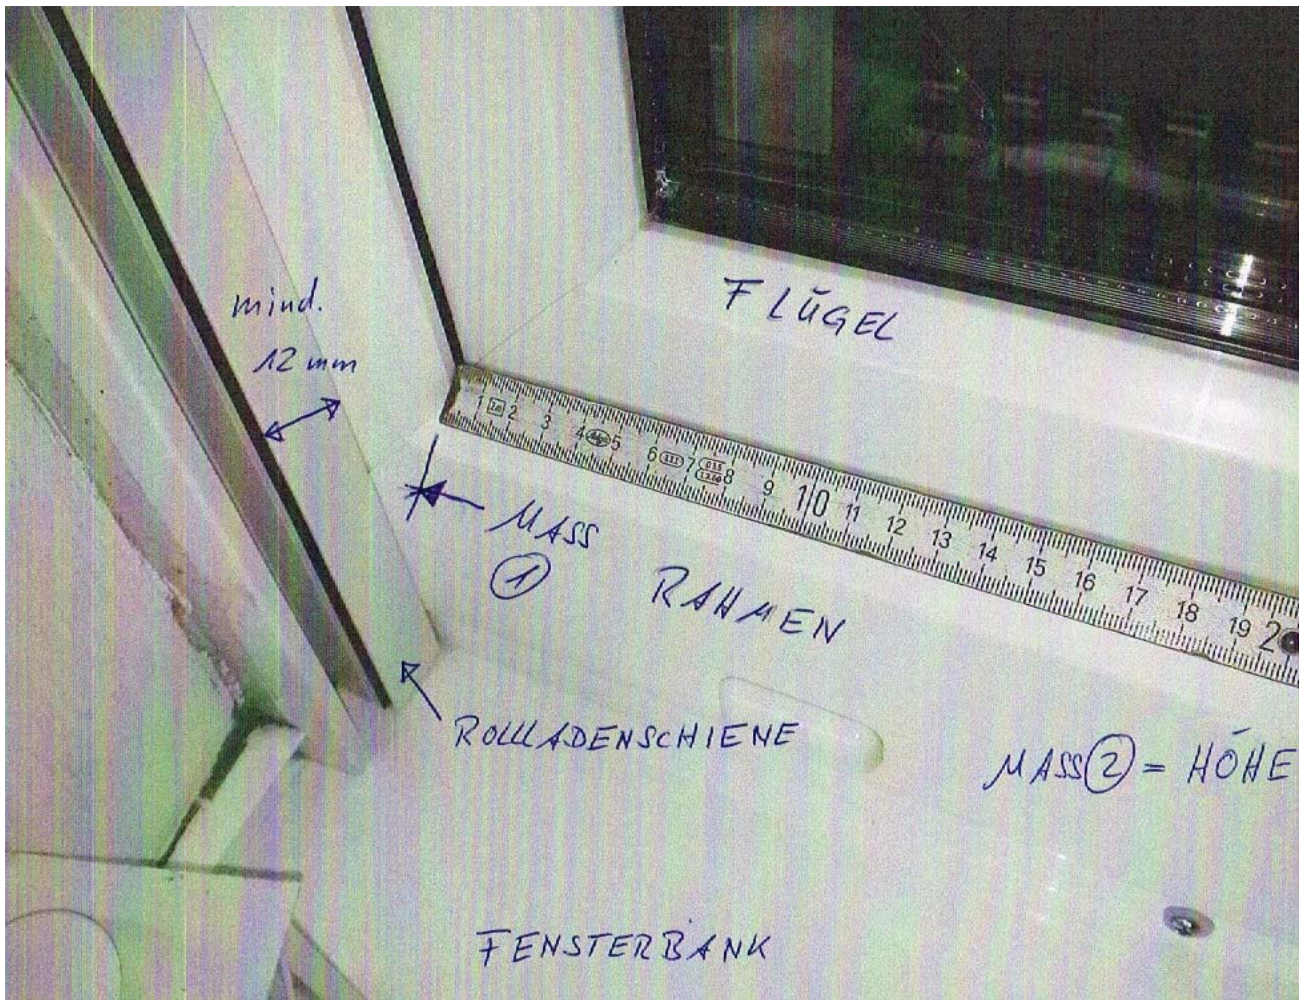 FLÜGEL
mind.
12 mm
1 2 3 4 5 6 7 8 9 10 11 12 13 14 15 16 17 18 19 2
MASS
1
RAHMEN
ROLLLADENSCHIENE
MASS 2 = HÖHE
FENSTERBANK